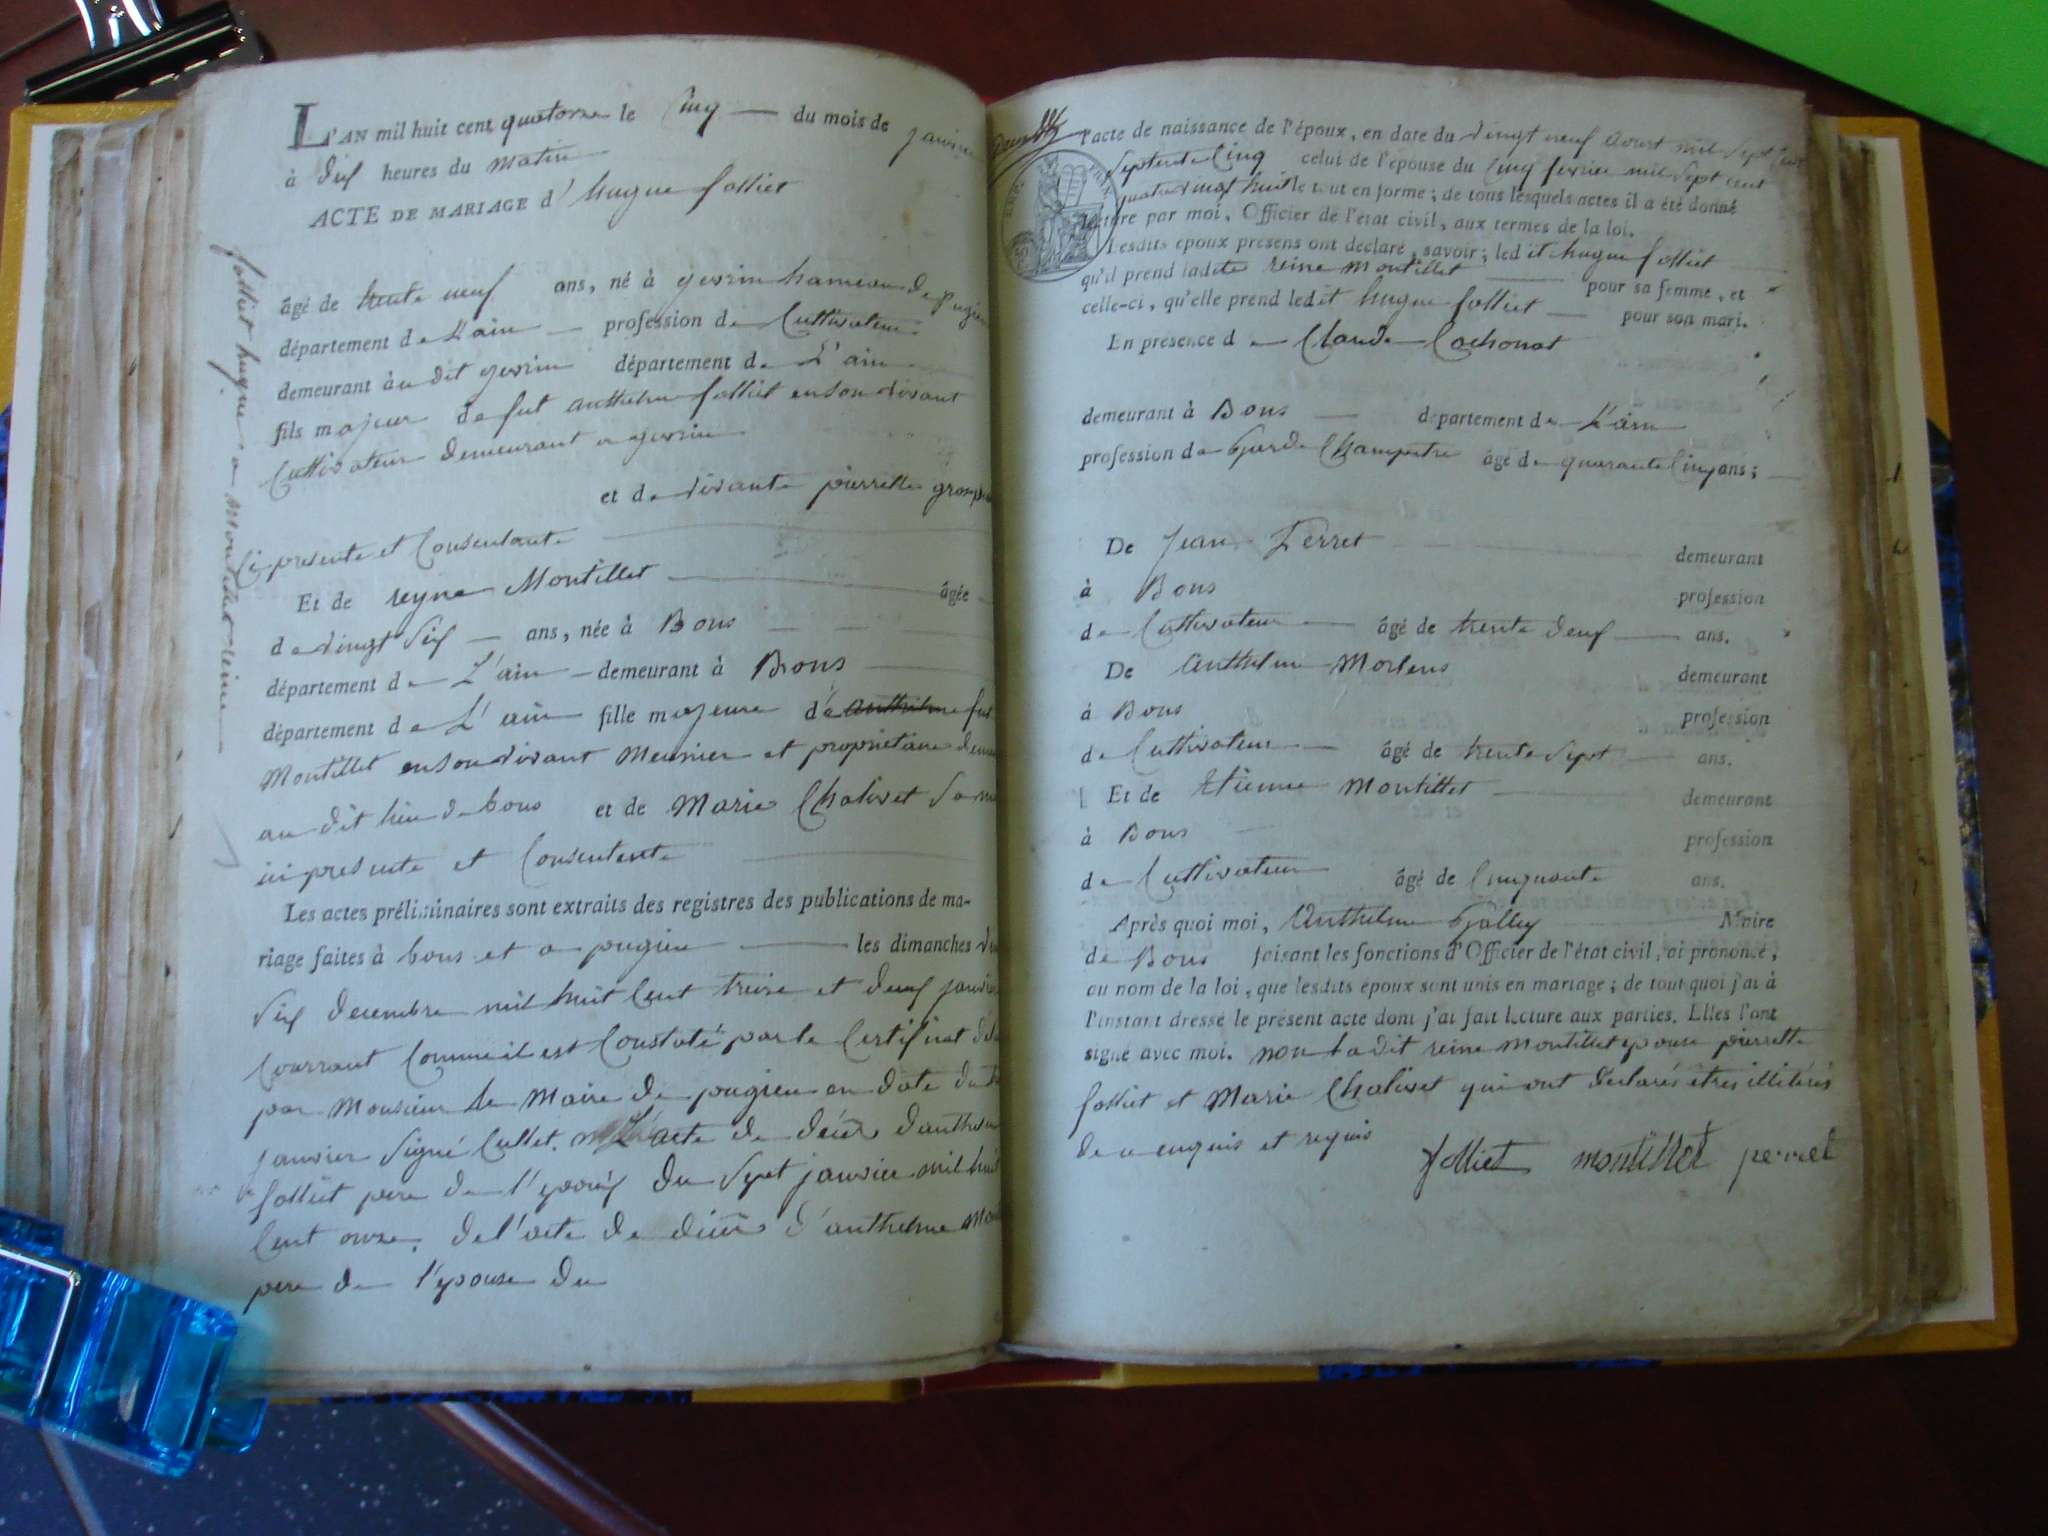 L'AN mil huit cent quatorze le Cinq du mois de janvier
à dix heures du matin
ACTE DE MARIAGE d'hugue folliet
âgé de trente neuf ans, né à gevrin hameau de pugieu
département de L'ain profession de Cultivateur
demeurant à au dit gevrin département de L'ain
fils majeur de fut anthelme folliet en son vivant
Cultivateur demeurant a gevrin
et de vivante pierrette
Ci presente et Consentante
Et de reyne Montillet âgée
de vingt six ans, née à Bons
département de L'ain demeurant à Bons
département de L'ain fille majeure de anthelme fut
Montillet en son vivant Meunier et proprietaire
au dit lieu de bons et de Marie Chalivet
ici presente et Consentente
Les actes préliminaires sont extraits des registres des publications de ma-
riage faites à bons et a pugieu les dimanches
six decembre mil huit Cent treize et deux janvier
Courrant Comme il est Constaté par le Certificat
par Monsieur le Maire de pugieu en date du
janvier signé Cullet. L'acte de décès d'anthelme
folliet pere de l'epoux du sept janvier mil huit
Cent onze. de l'acte de décès d'anthelme
pere de l'epouse du
folliet hugue a montillet reine
l'acte de naissance de l'époux, en date du vingt neuf aoust mil sept Cent
septente Cinq celui de l'épouse du Cinq fevrier mil sept cent
quatre vingt huit le tout en forme; de tous lesquels actes il a été donné
lecture par moi, Officier de l'état civil, aux termes de la loi.
Lesdits époux présens ont déclaré, savoir; led it hugue folliet
qu'il prend ladite reine montillet pour sa femme, et
celle-ci, qu'elle prend led it hugue folliet pour son mari.
En présence de Claude Cochonat
demeurant à Bons département de L'ain
profession de Garde Champetre âgé de quarante Cinq ans;
De Jean Perret demeurant
à Bons profession
de Cultivateur âgé de trente deux ans.
De Anthelme Morlens demeurant
à Bons profession
de Cultivateur âgé de trente sept ans.
Et de Etienne Montillet demeurant
à Bons profession
de Cultivateur âgé de Cinquante ans.
Après quoi moi, Anthelme Galley Maire
de Bons faisant les fonctions d'Officier de l'état civil, ai prononcé,
au nom de la loi, que lesdits époux sont unis en mariage; de tout quoi j'ai à
l'instant dressé le présent acte dont j'ai fait lecture aux parties. Elles l'ont
signé avec moi. non la dit reine montillet epouse pierrette
folliet et Marie Chalivet qui ont declarés etres illiterés
de ce enquis et requis
folliet montillet perret